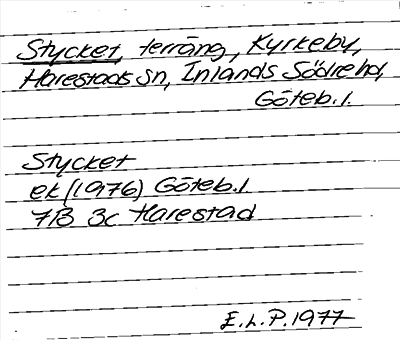 Stycket, terräng, Kyrkeby,
Harestads sn, Inlands Södre hd,
Göteb. l.
Stycket
ek (1976) Göteb. l
7B 3c Harestad
E.L.P. 1977